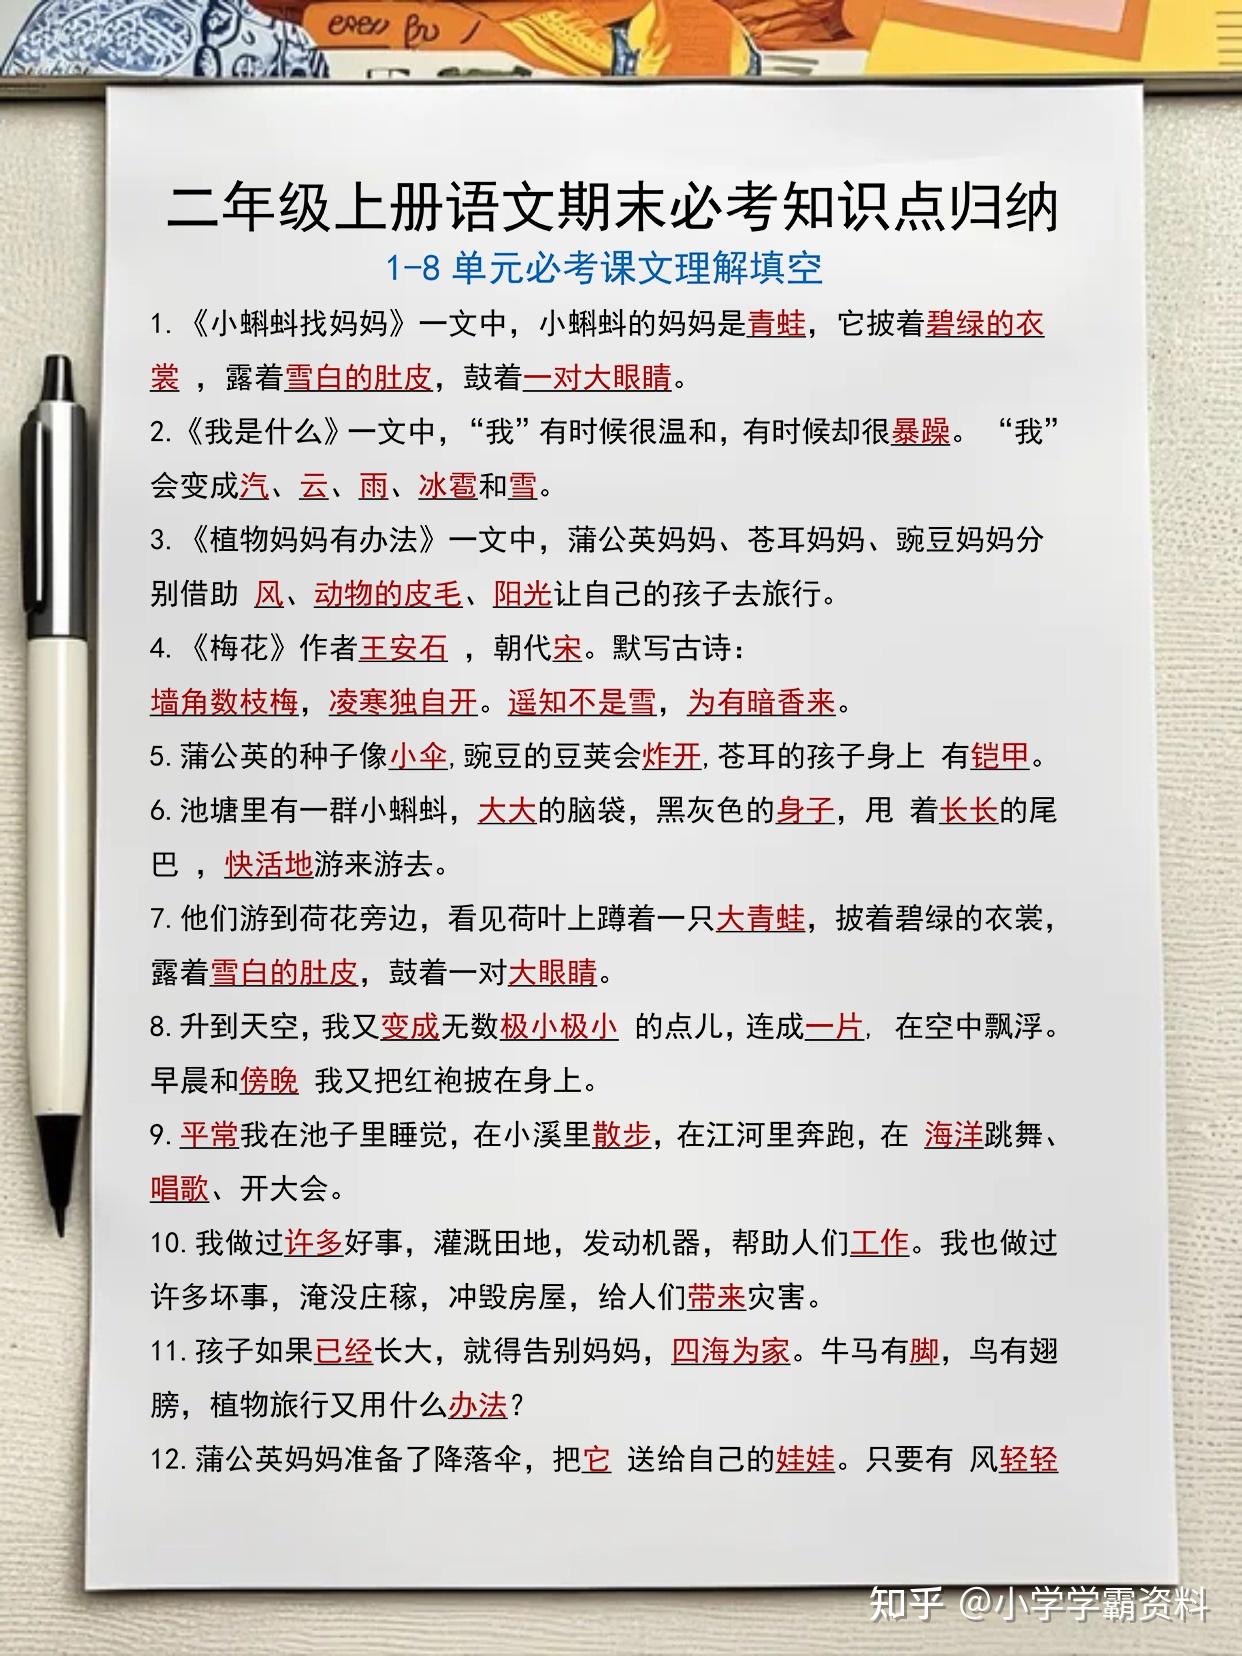 二年级上册语文期末必考知识点归纳
1-8 单元必考课文理解填空
1.《小蝌蚪找妈妈》一文中，小蝌蚪的妈妈是青蛙，它披着碧绿的衣
裳 ，露着雪白的肚皮，鼓着一对大眼睛。
2.《我是什么》一文中，“我”有时候很温和，有时候却很暴躁。 “我”
会变成汽、云、雨、冰雹和雪。
3.《植物妈妈有办法》一文中，蒲公英妈妈、苍耳妈妈、豌豆妈妈分
别借助 风、动物的皮毛、阳光让自己的孩子去旅行。
4.《梅花》作者王安石 ，朝代宋。默写古诗：
墙角数枝梅，凌寒独自开。遥知不是雪，为有暗香来。
5.蒲公英的种子像小伞,豌豆的豆荚会炸开,苍耳的孩子身上 有铠甲。
6.池塘里有一群小蝌蚪，大大的脑袋，黑灰色的身子，甩 着长长的尾
巴 ，快活地游来游去。
7.他们游到荷花旁边，看见荷叶上蹲着一只大青蛙，披着碧绿的衣裳，
露着雪白的肚皮，鼓着一对大眼睛。
8.升到天空，我又变成无数极小极小 的点儿，连成一片， 在空中飘浮。
早晨和傍晚 我又把红袍披在身上。
9.平常我在池子里睡觉，在小溪里散步，在江河里奔跑，在 海洋跳舞、
唱歌、开大会。
10.我做过许多好事，灌溉田地，发动机器，帮助人们工作。我也做过
许多坏事，淹没庄稼，冲毁房屋，给人们带来灾害。
11.孩子如果已经长大，就得告别妈妈，四海为家。牛马有脚，鸟有翅
膀，植物旅行又用什么办法？
12.蒲公英妈妈准备了降落伞，把它 送给自己的娃娃。只要有 风轻轻
知乎 @小学学霸资料